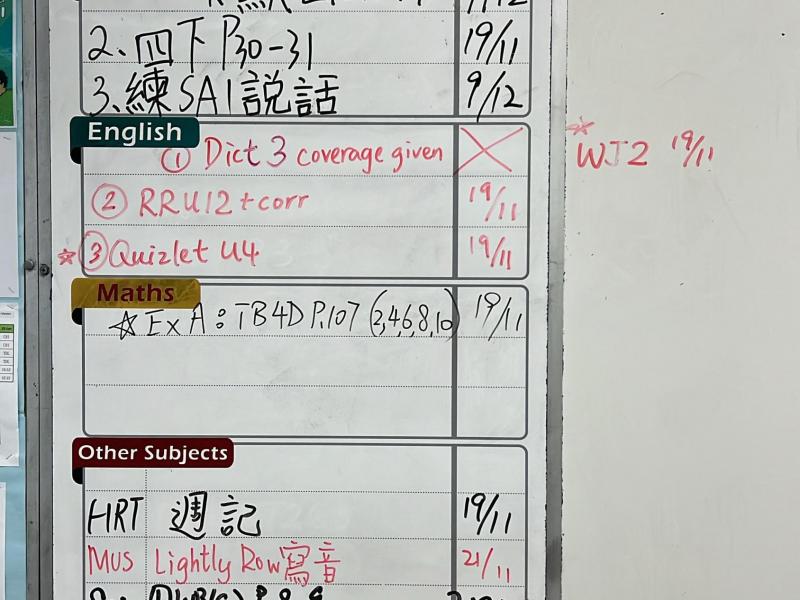 2. 四下 P30-31 19/11
3. 練SA1說話 9/12
English
① Dict 3 coverage given
② RRU12 + corr 19/11
☆ ③ Quizlet U4 19/11
☆ WJ2 19/11
Maths
☆ Ex A: TB4D P.107 (2,4,6,8,10) 19/11
Other Subjects
HRT 週記 19/11
MUS Lightly Row 寫音 21/11